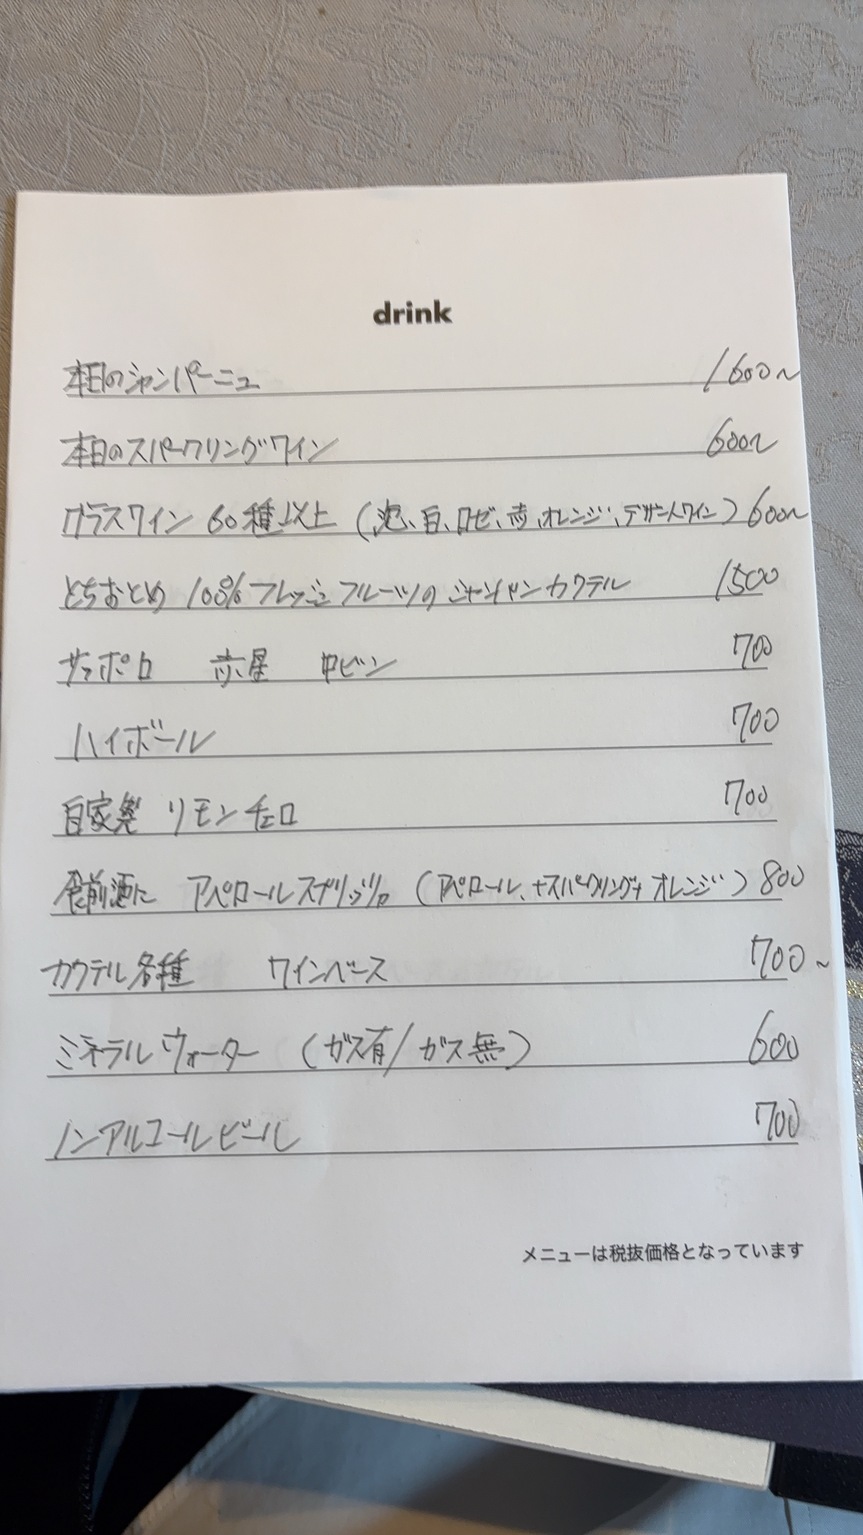 drink
本日のシャンパーニュ 1600~
本日のスパークリングワイン 600~
グラスワイン 60種以上 (泡、白、ロゼ、赤、オレンジ、デザートワイン) 600~
とちおとめ 100% フレッシュフルーツの シャンパンカクテル 1500
サッポロ 赤星 中ビン 700
ハイボール 700
自家製 リモンチェロ 700
食前酒に アペロールスプリッツ (アペロール、+スパークリング+オレンジ) 800
カクテル各種 ワインベース 700~
ミネラルウォーター (ガス有/ガス無) 600
ノンアルコールビール 700
メニューは税抜価格となっています